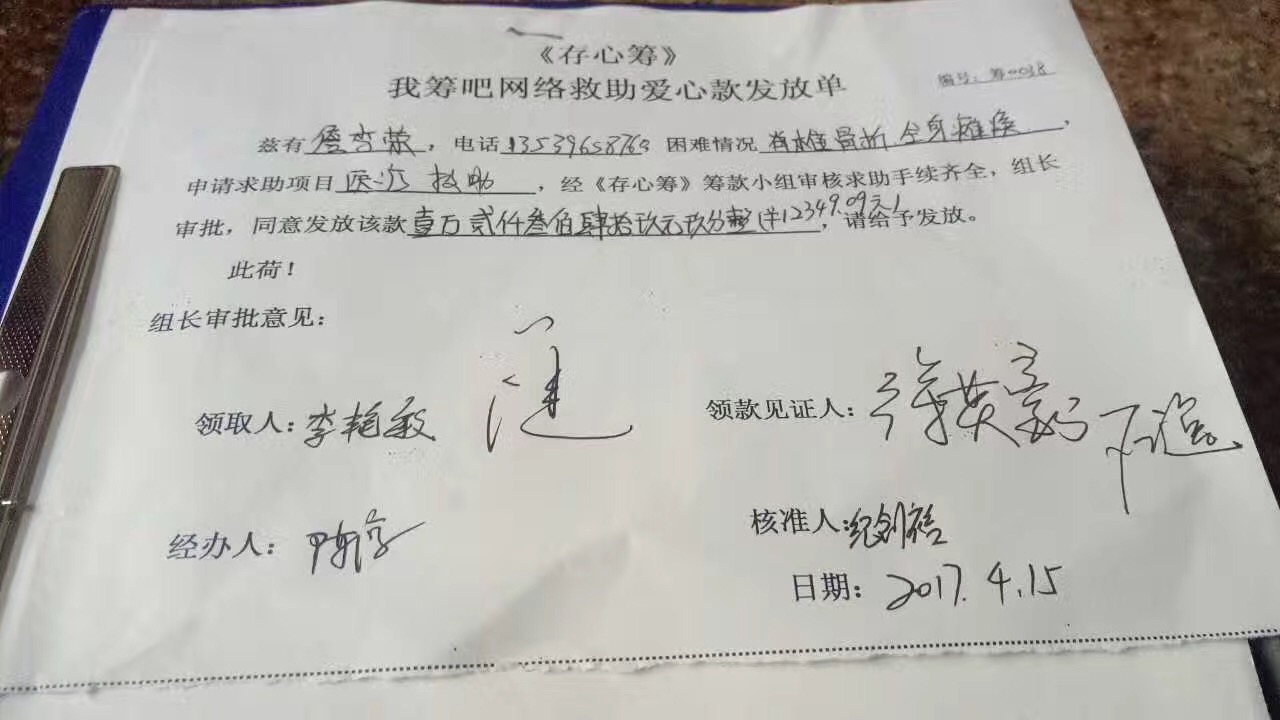 《存心筹》
我筹吧网络救助爱心款发放单
编号：筹0038
兹有詹李荣，电话13539658769困难情况脊椎骨折全身瘫痪，
申请求助项目医疗救助，经《存心筹》筹款小组审核求助手续齐全，组长
审批，同意发放该款壹万贰仟叁佰肆拾玖元玖分整(¥12349.09元)，请给予发放。
此荷！
组长审批意见：
领取人：李艳敏
领款见证人：许英豪
经办人：
核准人：纪剑裕
日期：2017.4.15